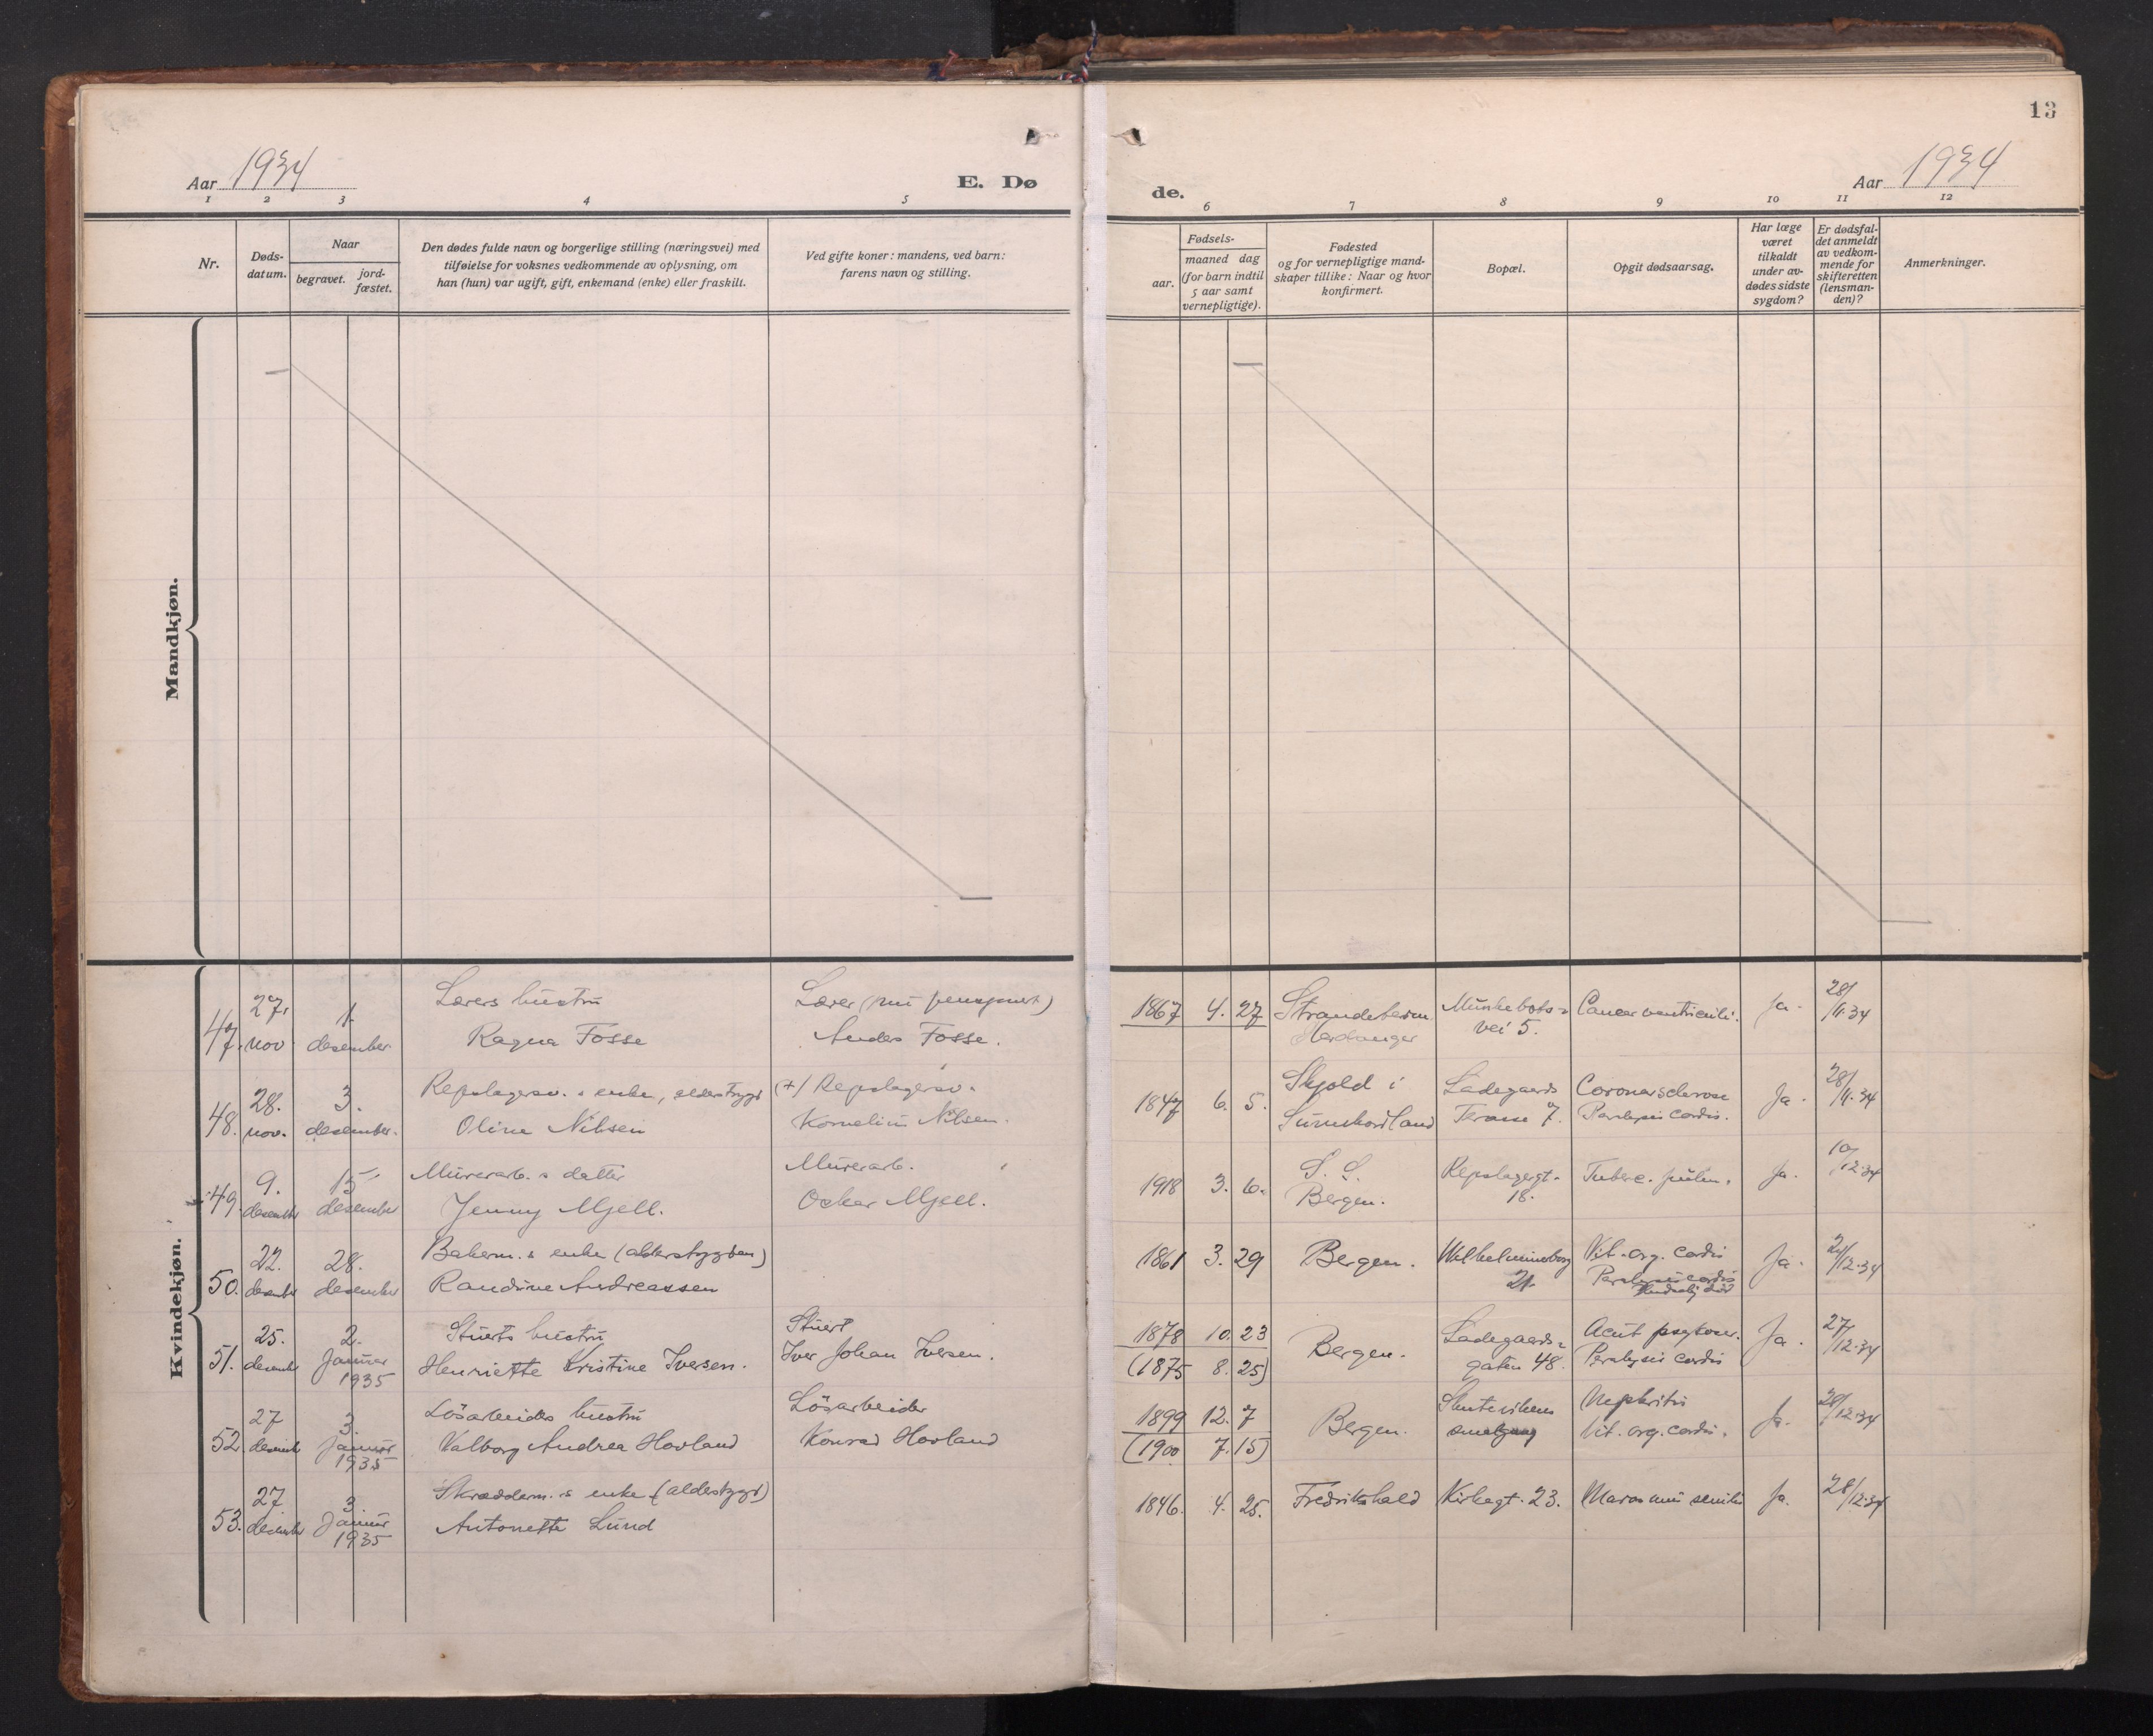 13
Aar 1934
E. Dø
de.
Aar 1934
1 2 3 4 5
6 7 8 9 10 11 12
Nr.
Døds-
datum.
Naar
begravet.
jord-
fæstet.
Den dødes fulde navn og borgerlige stilling (næringsvei) med
tilføielse for voksnes vedkommende av oplysning, om
han (hun) var ugift, gift, enkemand (enke) eller fraskilt.
Ved gifte koner: mandens, ved barn:
farens navn og stilling.
Fødsels-
aar.
maaned dag
(for barn indtil
5 aar samt
vernepligtige).
Fødested
og for vernepligtige mand-
skaper tillike: Naar og hvor
konfirmert.
Bopæl.
Opgit dødsaarsag.
Har læge
været
tilkaldt
under av-
dødes sidste
sygdom?
Er dødsfal-
det anmeldt
av vedkom-
mende for
skifteretten
(lensman-
den)?
Anmerkninger.
Mandkjøn.
Kvindekjøn.
47. 27. nov. 1. desember
Lærers hustru
Ragna Fosse
Lærer (nu pensjonert)
Andes Fosse.
1867 4. 27
Strandebarm
Hardanger
Munkebots-
vei 5.
Cancer ventriculi.
Ja.
28/11.34
48. 28. nov. 3. desember.
Repslagersv.s enke, alderstrygd
Oline Nilsen
(+) Repslagersv.
Kornelius Nilsen.
1847 6. 5.
Skjold i
Sunnhordland
Ladegaards
Terasse 7.
Coronarsclerose
Paralysis cordis.
Ja.
28/11.34
49. 9. desember 15 desember
Murerarb.s datter
Jenny Mjell.
Murerarb.
Oskar Mjell.
1918 3. 6.
S. S.
Bergen.
Repslagergt.
18.
Tuberc. pulm.
Ja.
10/12.34
50. 22. desember 28. desember
Bakerm.s enke (alderstrygden)
Randine Andreassen
1861 3. 29
Bergen.
Wilhelmineborg
21.
Vit. org. cordis
Paralysis cordis
Ja.
24/12.34
51. 25. desember 2. Januar 1935
Stuerts hustru
Henriette Kristine Iversen.
Stuert
Iver Johan Iversen.
1878 10. 23
(1875 8. 25)
Bergen.
Ladegaards-
gaten 48.
Acut psykose.
Paralysis cordis
Ja.
27/12.34
52. 27 desember 3. Januar 1935
Løsarbeiders hustru
Valborg Andrea Hovland
Løsarbeider
Konrad Hovland
1899 12. 7
(1900 7. 15)
Bergen.
Skutevikens
smalgang
Nephritis
Vit. org. cordis.
Ja.
28/12.34
53. 27 desember 3. Januar 1935
Skrædderm.s enke (alderstrygd)
Antonette Lund
1846. 4. 25.
Fredrikshald
Kirkegt. 23.
Marasmus senilis
Ja.
28/12.34